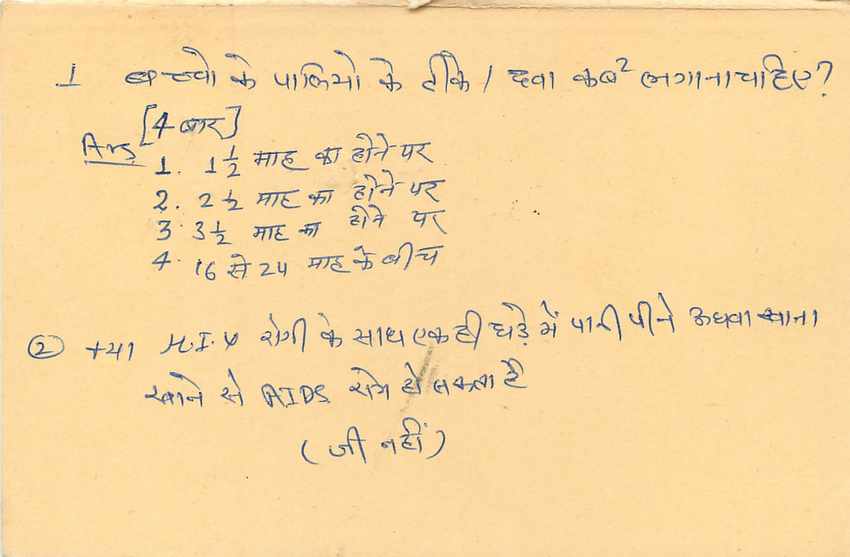 1 बच्चो के पालियो के टीके / दवा कब² लगाना चाहिए?
[4 बार]
Ans 1. 1½ माह का होने पर
2. 2½ माह का होने पर
3. 3½ माह का होने पर
4. 16 से 24 माह के बीच
② क्या H.I.V रोगी के साथ एक ही घड़े में पानी पीने अथवा खाना
खाने से AIDS रोग हो सकता है
(जी नहीं)